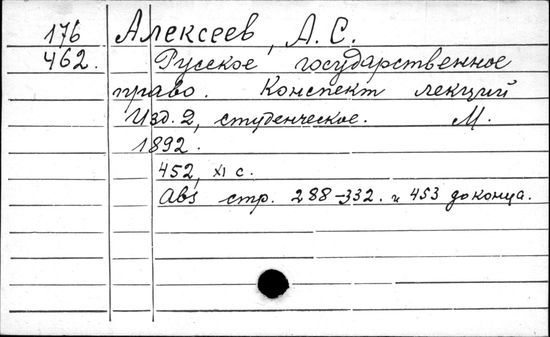 176 Алексеев, А. С.
462. Русское государственное
право. Конспект лекций
Изд. 2, студенческое. М.
1892.
452, XI с.
Abs стр. 288-332. и 453 до конца.